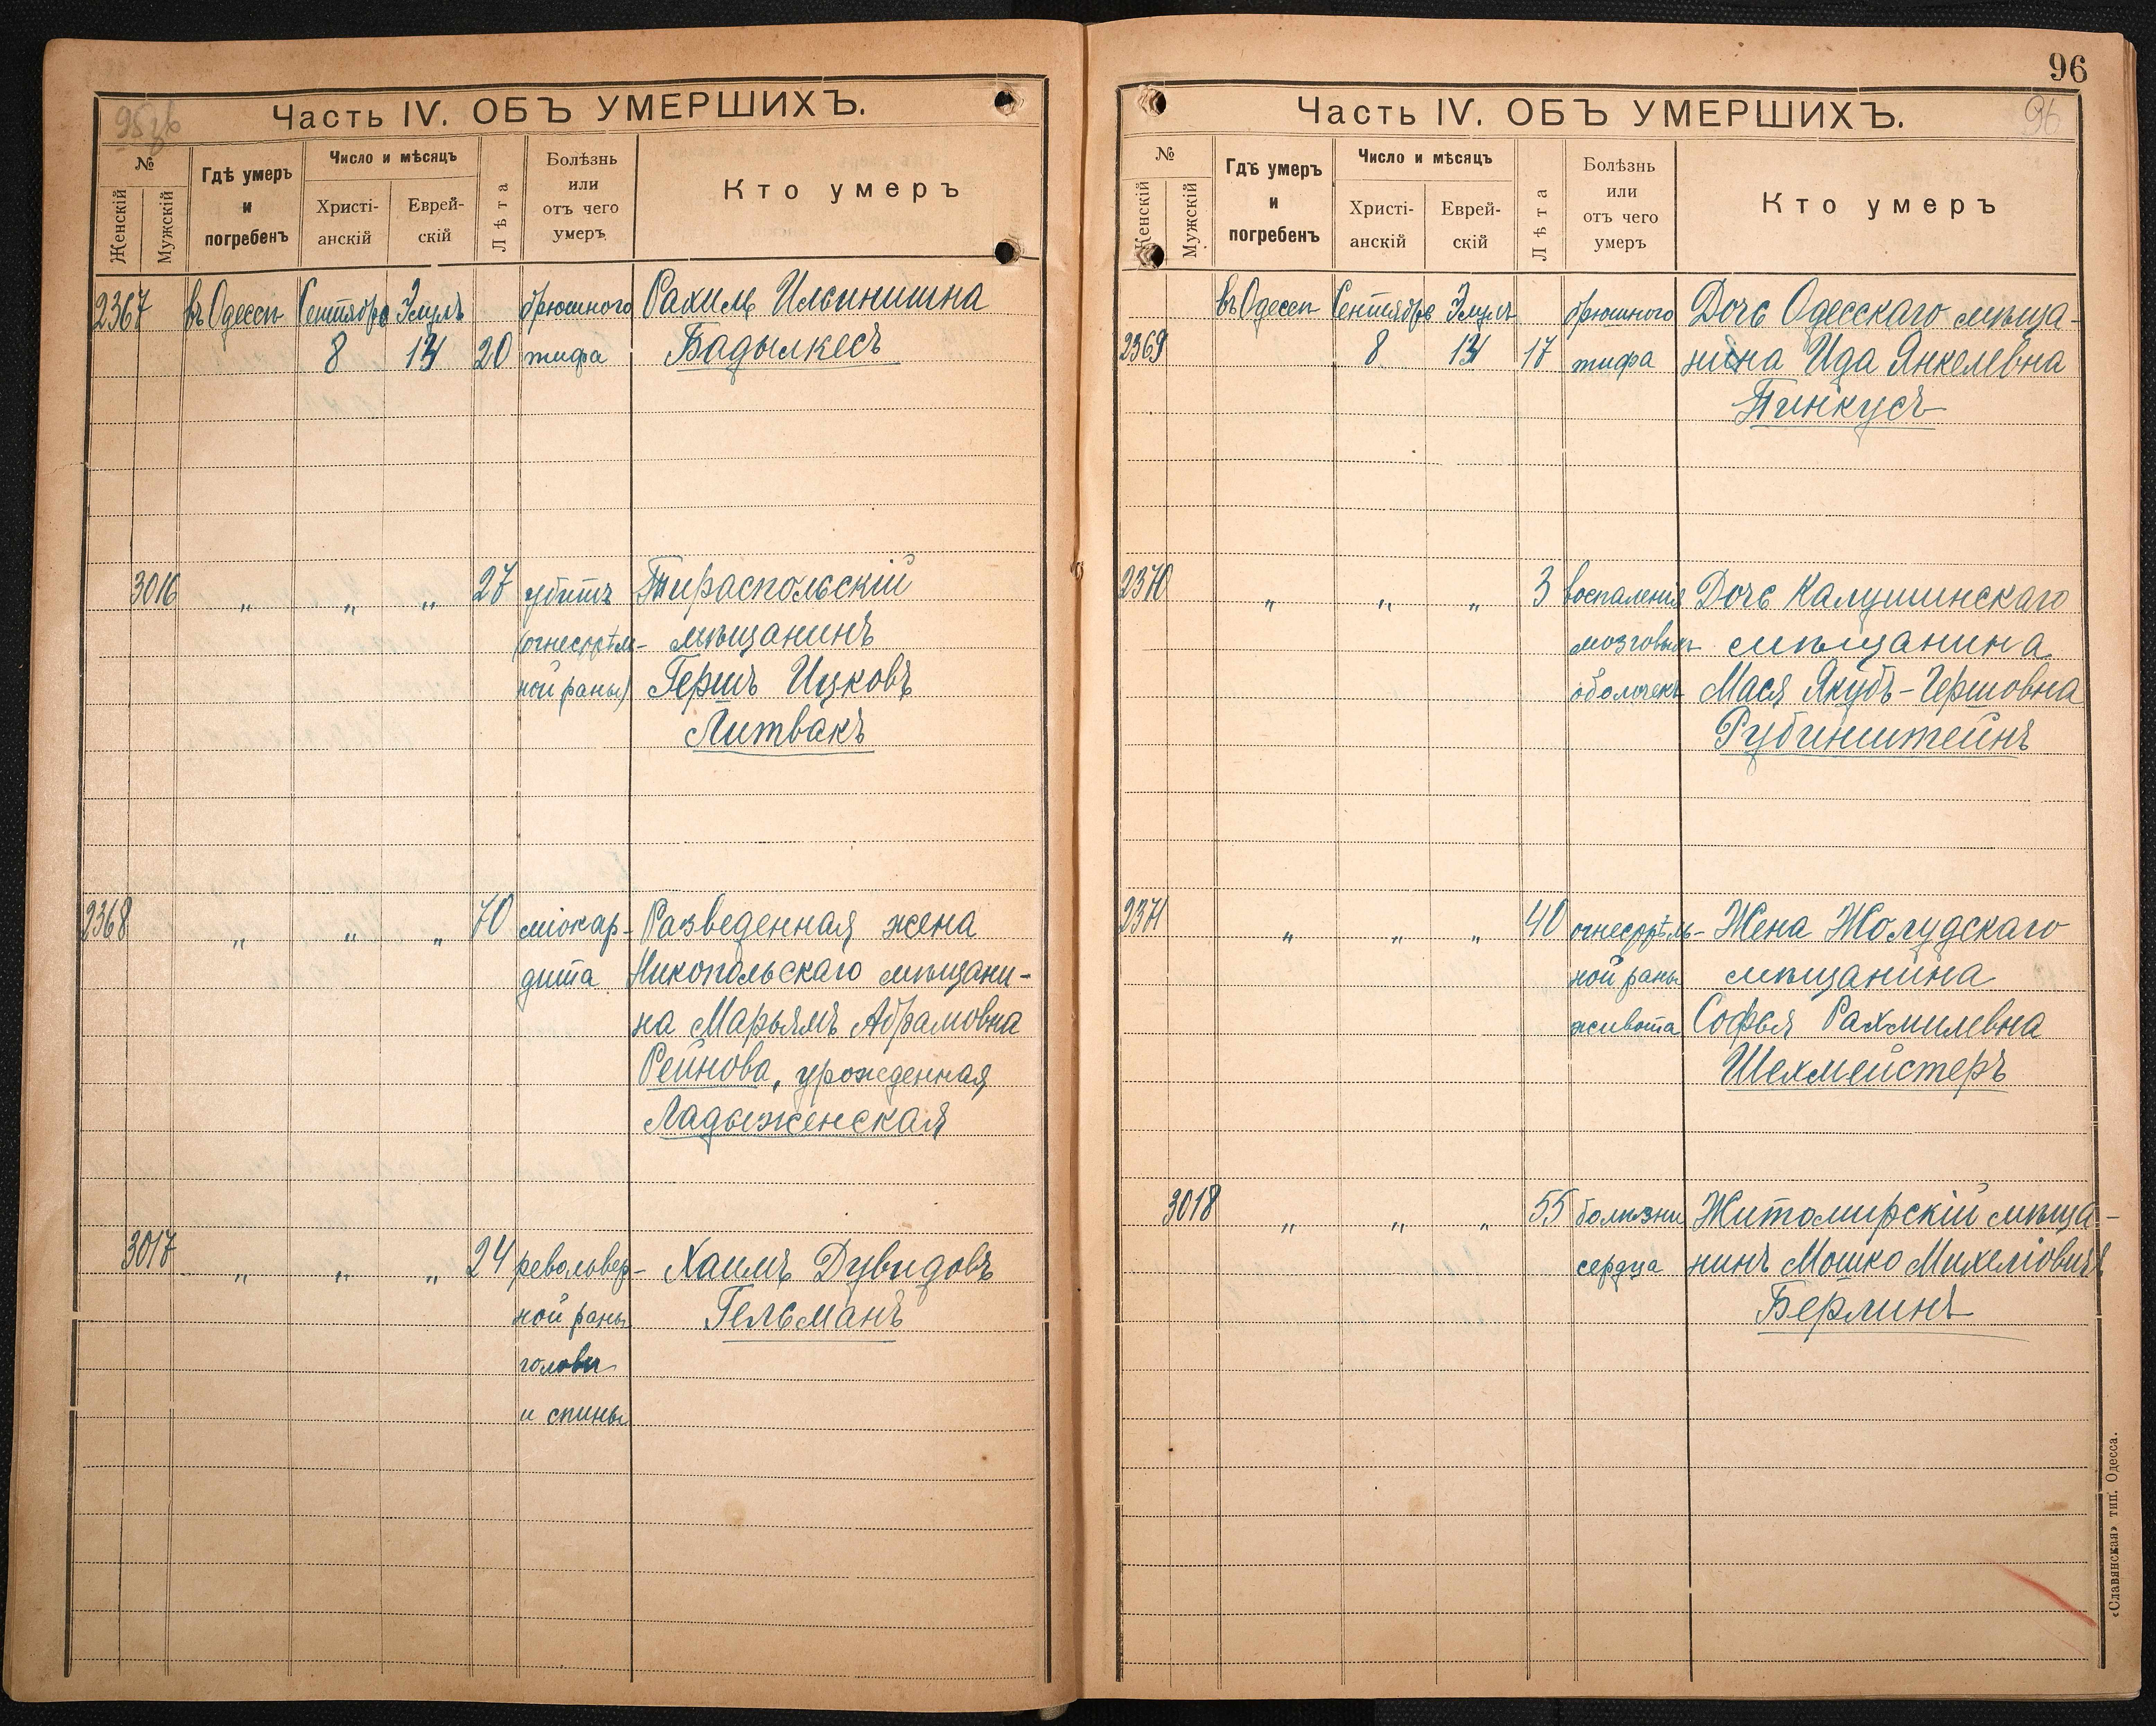 Часть IV. ОБЪ УМЕРШИХЪ.
№
Женскій
Мужскій
Гдѣ умеръ
и
погребенъ
Число и мѣсяцъ
Христі-
анскій
Еврей-
скій
Лѣта
Болѣзнь
или
отъ чего
умеръ
Кто умеръ
2367 въ Одессѣ Сентября Элулъ брюшного Рахиль Ильинишна
8 14 20 тифа Бадылкесъ
3016 „ „ „ 27 убитъ Тираспольскій
(огнестрѣль- мѣщанинъ
ной раны) Гершъ Ицковъ
Литвакъ
2368 „ „ „ 70 міокар- Разведенная жена
дита Никопольскаго мѣщани-
на Марьямъ Абрамовна
Рейнова, урожденная
Ладыженская
3017 „ „ „ 24 револьвер- Хаимъ Дувидовъ
ной раны Гельманъ
головы
и спины
96
96
Часть IV. ОБЪ УМЕРШИХЪ.
№
Женскій
Мужскій
Гдѣ умеръ
и
погребенъ
Число и мѣсяцъ
Христі-
анскій
Еврей-
скій
Лѣта
Болѣзнь
или
отъ чего
умеръ
Кто умеръ
въ Одессѣ Сентября Элулъ брюшного Дочь Одесскаго мѣща-
2369 8 14 17 тифа нина Ида Янкелевна
Пинкусъ
2370 „ „ „ 3 воспаленія Дочь Калушинскаго
мозговыхъ мѣщанина
оболочекъ Мася Якубъ-Гершовна
Рубинштейнъ
2371 „ „ „ 40 огнестрѣль- Жена Жолудскаго
ной раны мѣщанина
живота Софья Рахмилевна
Шехмейстеръ
3018 „ „ „ 55 болѣзни Житомирскій мѣща-
сердца нинъ Мошко Михеліовичъ
Берлинъ
«Славянская» тип. Одесса.